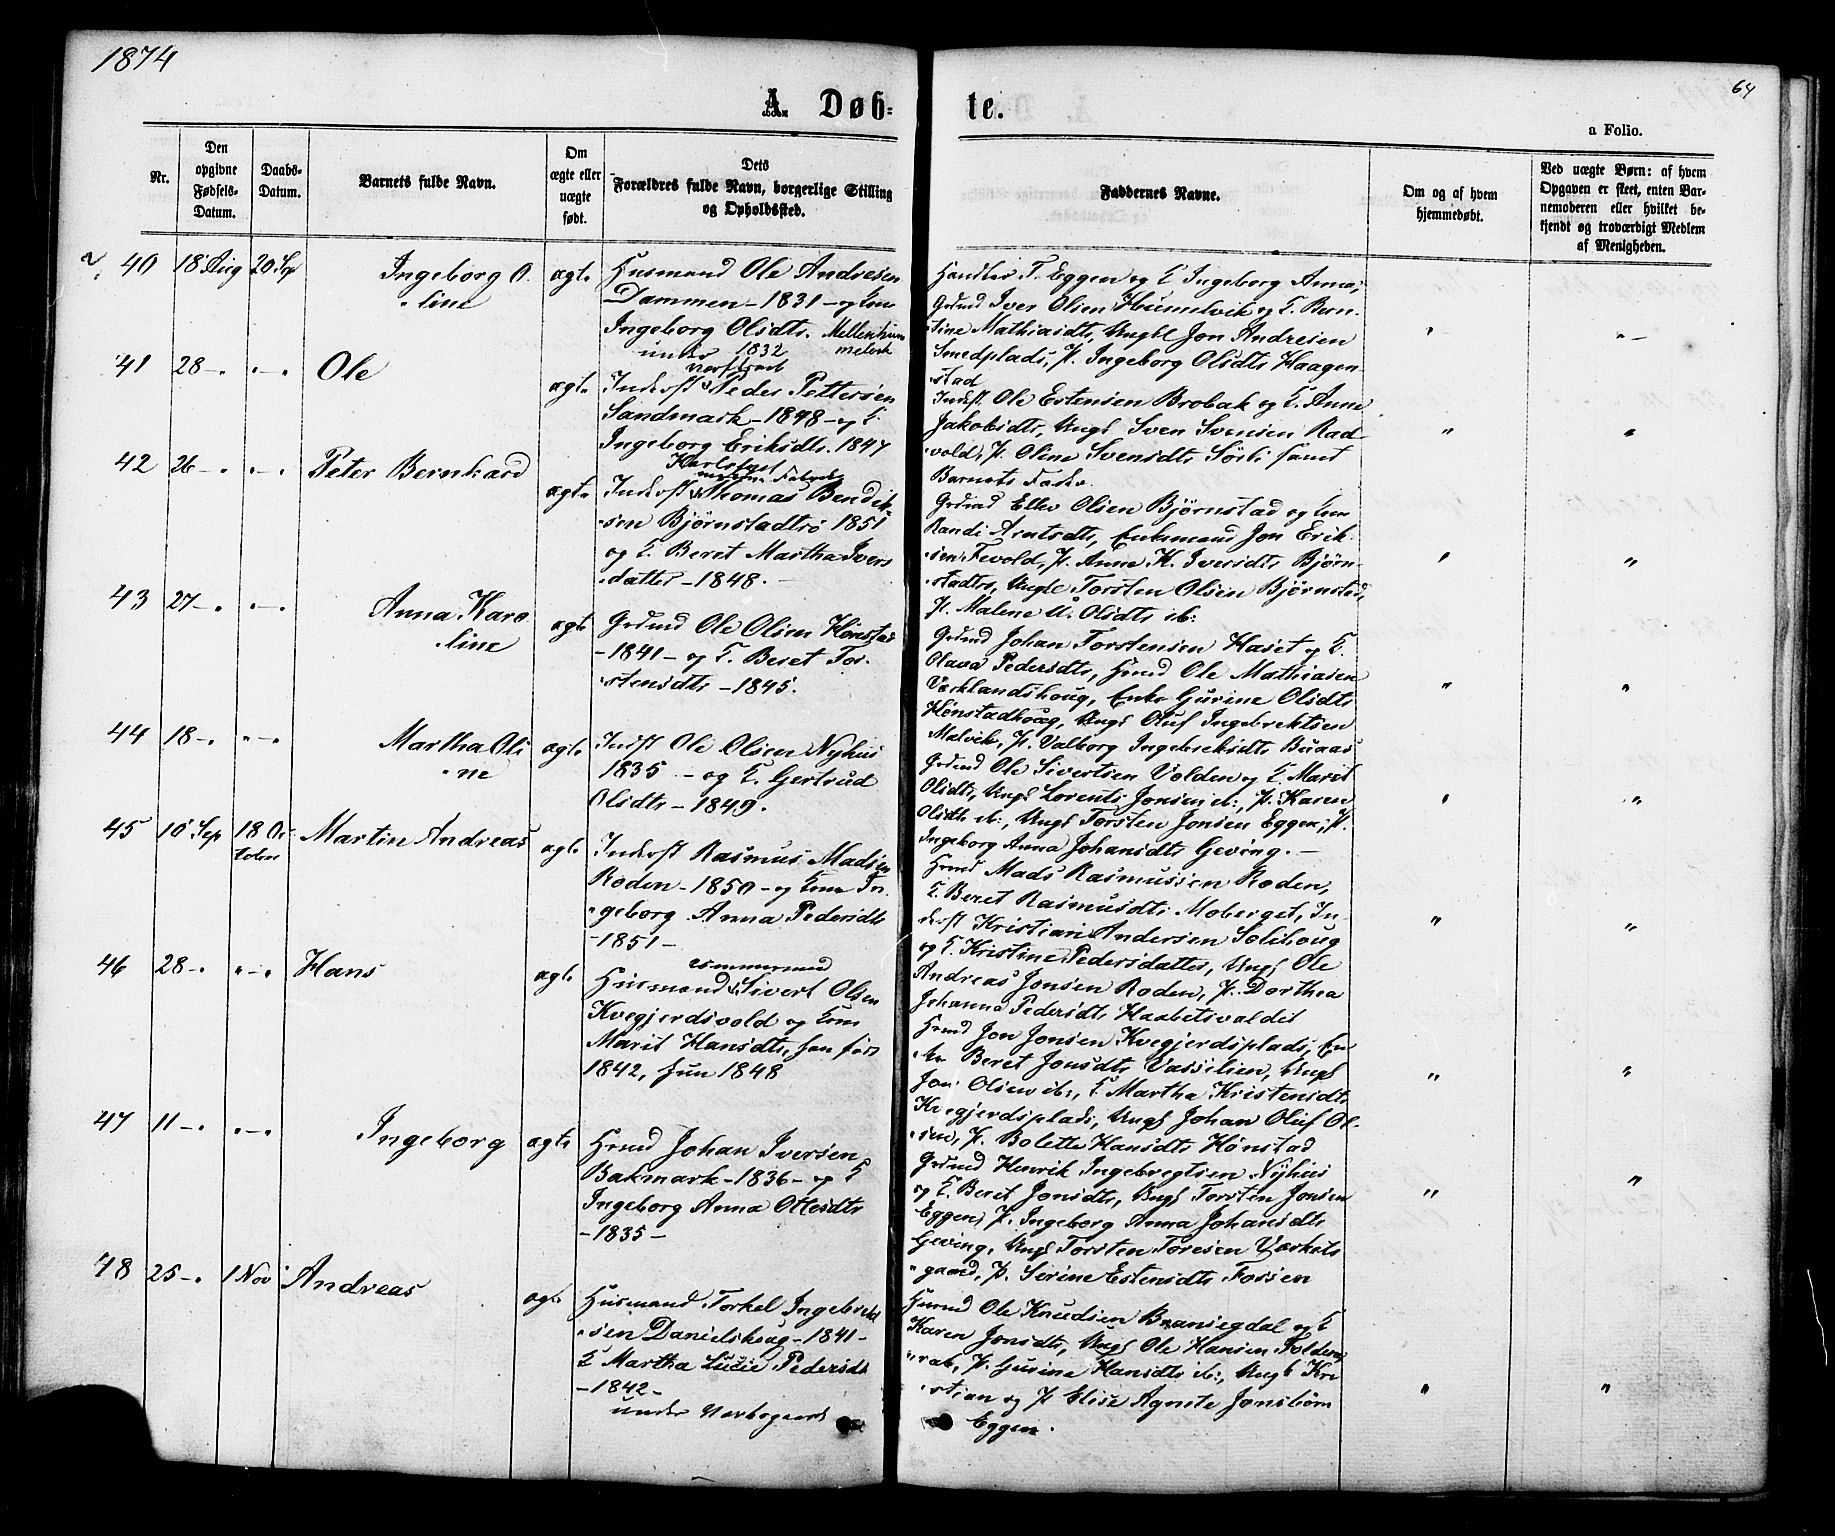 1874
64
A. Døb-
te.
a Folio.
Nr.
Den
opgivne
Fødsels-
Datum.
Daabs-
Datum.
Barnets fulde Navn.
Om
ægte eller
uægte
født.
Dets
Forældres fulde Navn, borgerlige Stilling
og Opholdssted.
Faddernes Navne.
Om og af hvem
hjemmedøbt.
Ved uægte Børn: af hvem
Opgaven er skeet, enten Bar-
nemoderen eller hvilket be-
kjendt og troværdigt Medlem
af Menigheden.
40 18 Aug 20 Sep Ingeborg O.
line
ægte
Husmand Ole Andresen
Dammen - 1831 - og
Ingeborg Olsdtr.
under 1832
Handler T. Eggen og E Ingeborg Anna,
Grdmd Iver Olsen Hummelvik og E. Bern-
tine Mathiasdtr, Ungk Jon Andresen
Smedplads, P. Ingeborg Olsdtr Haagen-
stad
41 28 - " " - " Ole
ægte
Inderst Peder Pettersen
Sandmark - 1848 - og E
Ingeborg Eriksdtr. 1847
Inderst. Ole Estensen Brobak og E. Anne
Jakobsdtr, Ungk Sven Svensen Rad-
vold, P. Oline Svensdtr Sørli samt
Barnets Fader.
42 26 - " " - " Peter Bernhard
ægte
Inderst Thomas Bendik-
sen Bjørnstadtrø 1851
og E. Beret Martha Ivers
datter - 1848. -
Grdmd Ellev Olsen Bjørnstad og
Randi Arntsdtr, Enkemand Jon Erik-
sen Fevold, P. Anne K. Iversdtr Bjørn-
stadtrø, Ungk Torsten Olsen Bjørnstad,
P. Malene U. Olsdtr ib:
43 27 - " " - " Anna Karo
line
ægte
Grdmd Ole Olsen Hønstad
- 1841 - og E. Beret Tor-
stensdtr - 1845.
Grdmd Johan Torstensen Haset og E.
Olava Pedersdtr, Hmd Ole Mathiasen
Værklandshoug, Enke Gurine Olsdtr
Hønstadhoug, Ungk Oluf Ingebrektsen
Malvik, P. Valborg Ingebreksdtr Buaas
44 18 - " " - " Martha Oli
ne
ægte
Inderst Ole Olsen Nyhus
1835 - og E. Gertrud
Olsdtr - 1849.
Grdmd Ole Sivertsen Volden og E. Marit
Olsdtr, Ungk Lorents Jonsen ib:, P. Karen
Olsdtr ib:, Ungk Torsten Jonsen Eggen, P.
Ingeborg Anna Johansdtr Geving. -
45 10 Sep 18 Oc-
tober Martin Andreas
ægte
Inderst Rasmus Madsen
Roden - 1850 - og In-
geborg Anna Pedersdtr
- 1851 -
Hmd Mads Rasmussen Roden,
E Beret Rasmusdtr Moberget, In-
derst Kristian Andersen Solihoug
og E. Kristine Pedersdatter, Ungk Ole
Andreas Jonsen Roden, P. Dorthea
Johanna Pedersdtr Haabetsvaldet
46 28 - " " - " Hans
ægte
tømmermand
Husmand Sivert Olsen
Kvegjerdsvold og
Marit Hansdtr, han født
1842, hun 1848
Hmd Jon Jonsen Kvegjerdsplads, En-
ke Beret Jonsdtr Vasselien, Ungk
Jon Olsen ib:, E Martha Kristensdtr
Kvegjerdsplads, Ungk Johan Oluf Ol-
sen, P. Bolette Hansdtr Hønstad
47 11 - " " - " Ingeborg
ægte
Hmd Johan Iversen
Bakmark - 1836 - og E
Ingeborg Anna Ottesdtr
- 1835 -
Grdmd Henrik Ingebregtsen Nyhus
og E. Beret Jonsdtr, Ungk Torsten Jonsen
Eggen, P. Ingeborg Anna Johansdtr
Geving, Ungk Torsten Toresen Værkets
gaard, P. Serine Estensdtr Fossen
48 25 - " 1 Nov Andreas
ægte
Husmand Torkel Ingebrekt
sen Danielshoug - 1841 -
E Martha Lucie Pedersdtr
- 1842 -
under
Hmd Ole Knudsen Bransegdal og E
Karen Jonsdtr, Ungk Ole Hansen Folden
P. Gurine Hansdtr ib:, Ungk Kri
stian og P. Elise Agnete Jonsbørn
Eggen.